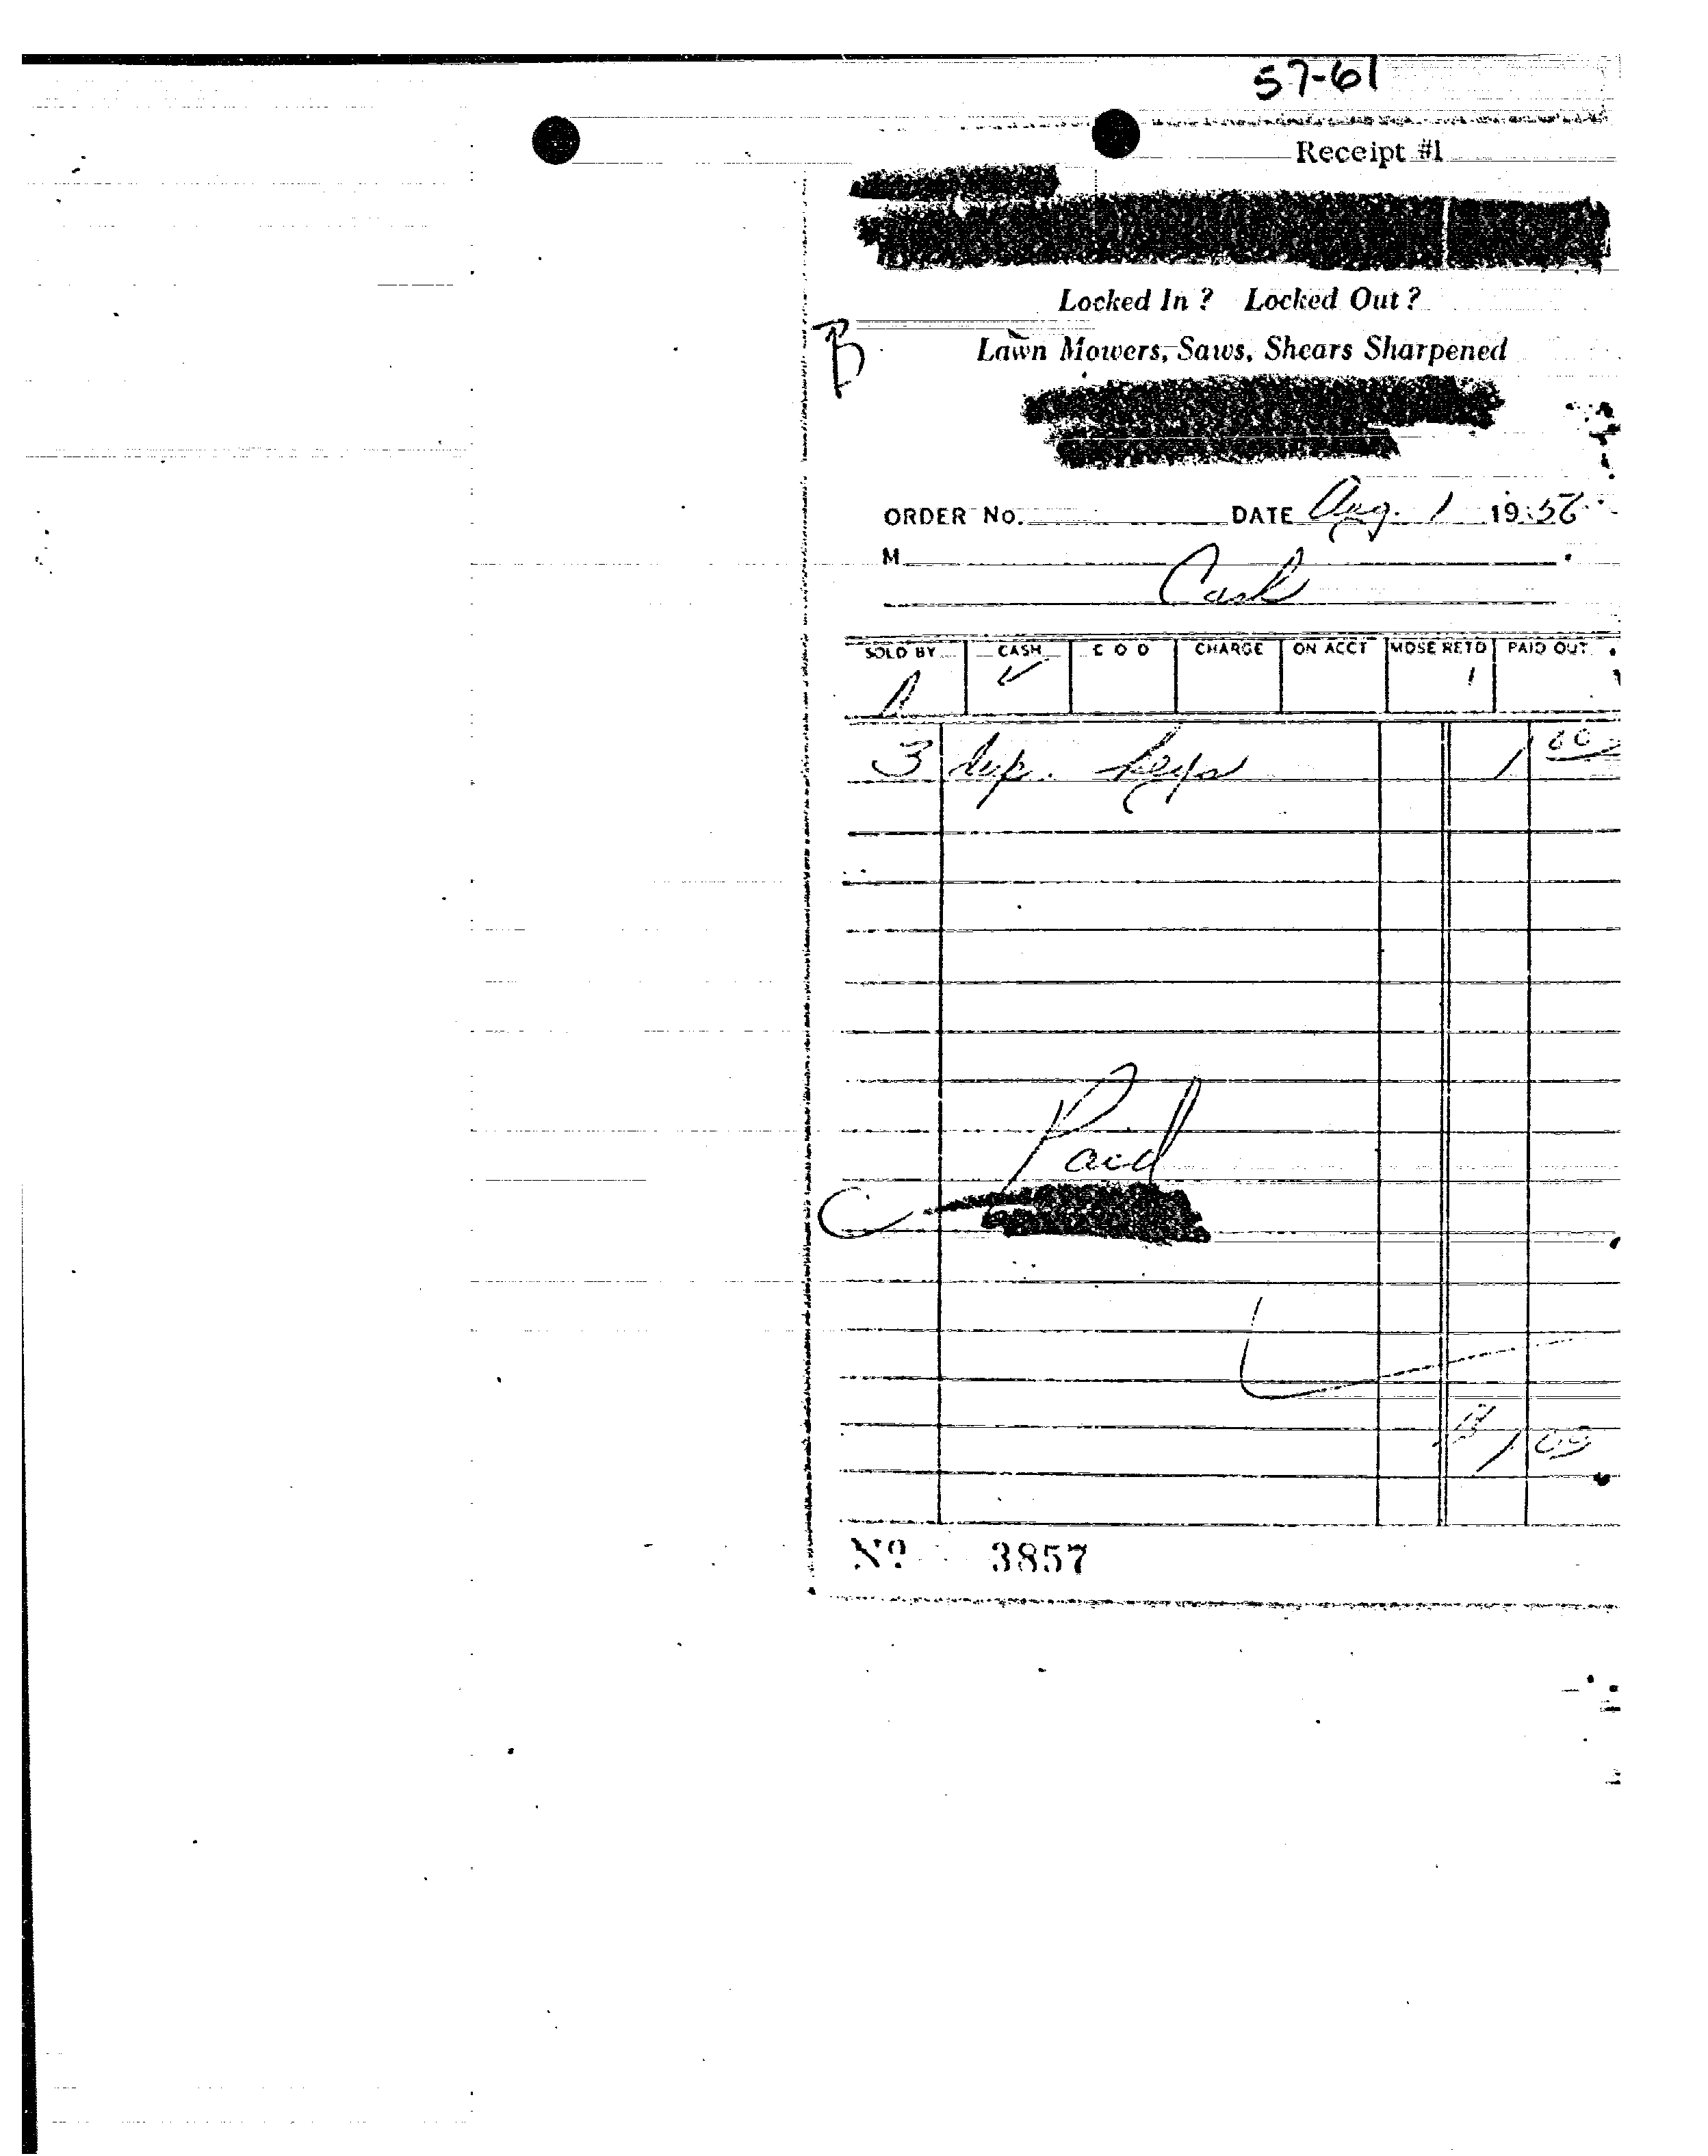 57-61
Receipt #1
Locked In ? Locked Out ?
B
Lawn Mowers, Saws, Shears Sharpened
ORDER No. DATE Aug. 1 1956
M
Cash
SOLD BY CASH C O D CHARGE ON ACCT MDSE RETD PAID OUT
✓
3 dup. keys 1 00
Paid
$ 1 00
Nº 3857